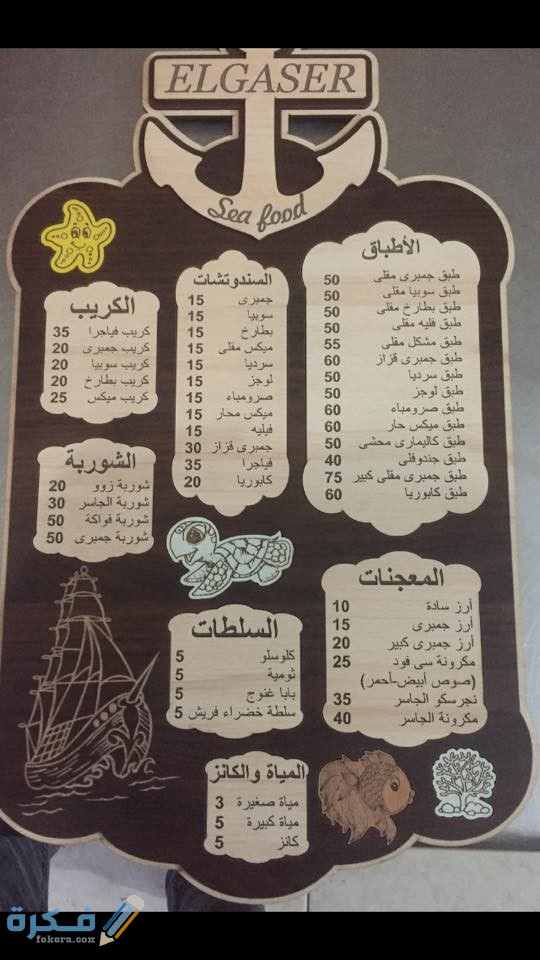 ELGASER
Sea food
الأطباق
طبق جمبرى مقلى 50
طبق سوبيا مقلى 50
طبق بطارخ مقلى 50
طبق فليه مقلى 50
طبق مشكل مقلى 55
طبق جمبرى قزاز 60
طبق سرديا 50
طبق لوجز 50
طبق صرومباء 60
طبق ميكس حار 60
طبق كاليمارى محشى 50
طبق جندوفلى 40
طبق جمبرى مقلى كبير 75
طبق كابوريا 60
السندوتشات
جمبرى 15
سوبيا 15
بطارخ 15
ميكس مقلى 15
سرديا 15
لوجز 15
صرومباء 15
ميكس محار 15
فيليه 15
جمبرى قزاز 30
فياجرا 35
كابوريا 20
الكريب
كريب فياجرا 35
كريب جمبرى 20
كريب سوبيا 20
كريب بطارخ 20
كريب ميكس 25
الشوربة
شوربة زوو 20
شوربة الجاسر 30
شوربة فواكة 50
شوربة جمبرى 50
المعجنات
أرز سادة 10
أرز جمبرى 15
أرز جمبرى كبير 20
مكرونة سى فود 25
(صوص أبيض-أحمر)
نجرسكو الجاسر 35
مكرونة الجاسر 40
السلطات
كلوسلو 5
ثومية 5
بابا غنوج 5
سلطة خضراء فريش 5
المياة والكانز
مياة صغيرة 3
مياة كبيرة 5
كانز 5
فكرة
fekera.com